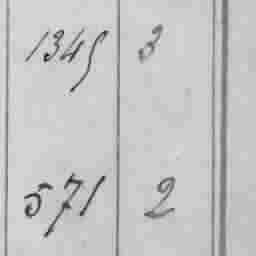 1345 3
571 2